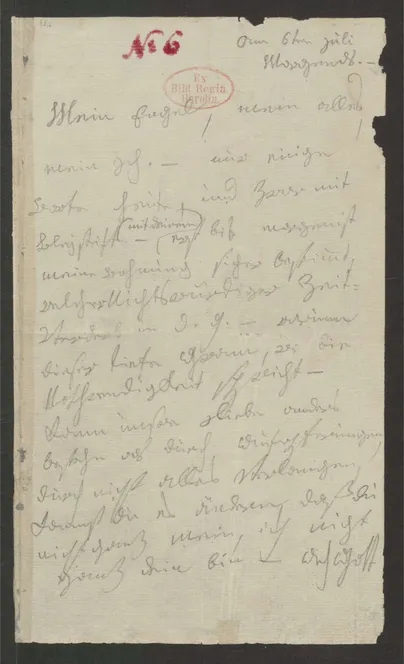 No 6
am 6ten Juli
Morgends. –
Mein Engel, mein alles,
mein Ich. – nur einige
Worte heute, und zwar mit
Bleystift – (mit deinem) bis morgen ist
meine Wohnung sicher bestimmt,
welcher Nichtswürdiger Zeit-
Verderb in d. g. – warum
dieser tiefe Gram, wo die
Nothwendigkeit spricht –
Kann unsre Liebe anders
bestehn als durch Aufopferungen,
durch nicht alles verlangen,
kannst du es ändern, daß du
nicht ganz mein, ich nicht
ganz dein bin – Ach Gott
Ex
Bibl. Regia
Berolin.